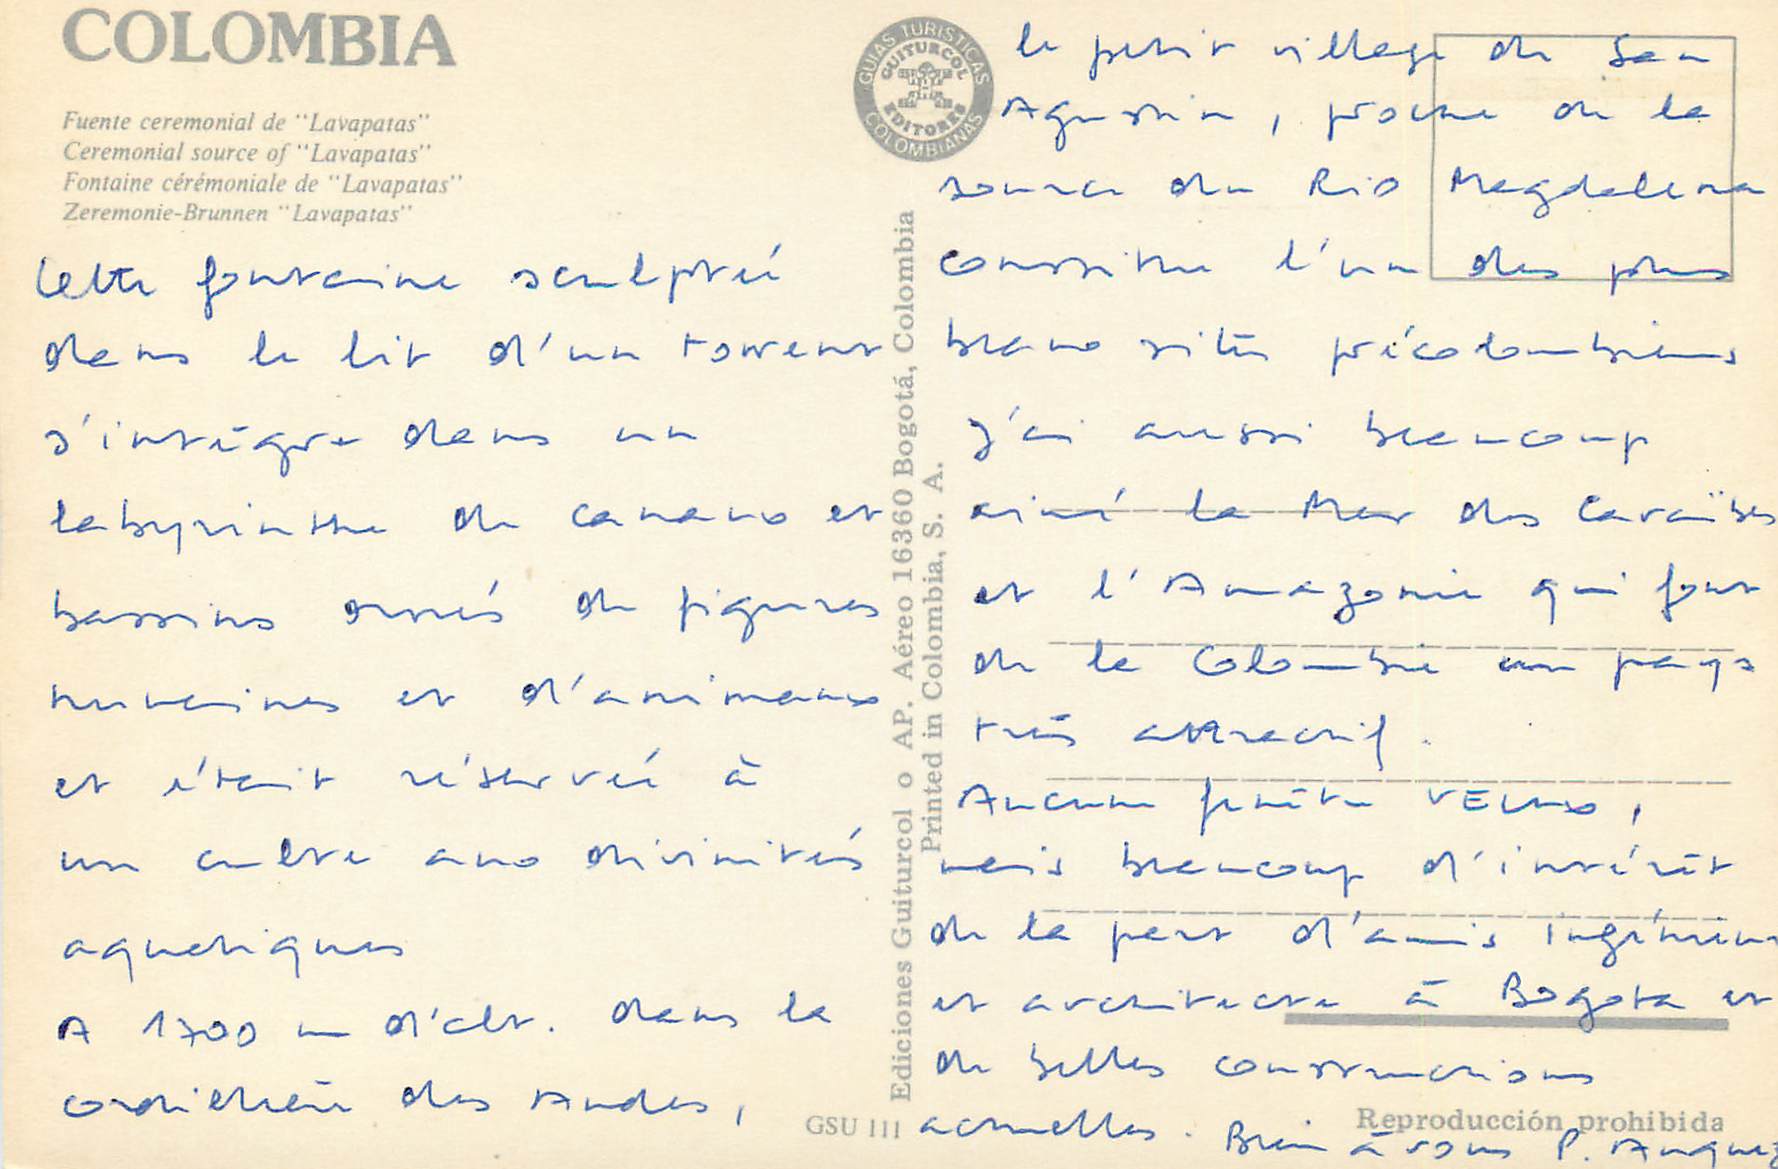 COLOMBIA
Fuente ceremonial de "Lavapatas"
Ceremonial source of "Lavapatas"
Fontaine cérémoniale de "Lavapatas"
Zeremonie-Brunnen "Lavapatas"
Cette fontaine sculptée
dans le lit d'un torrent
s'intègre dans un
labyrinthe de canaux et
bassins ornés de figures
humaines et d'animaux
et était réservée à
un culte aux divinités
aquatiques
A 1700 m d'alt. dans la
cordillère des Andes,
GUIAS TURISTICAS
GUITURCOL
EDITORES
COLOMBIANAS
Ediciones Guiturcol o AP. Aéreo 16360 Bogotá, Colombia
Printed in Colombia, S. A.
GSU 111
le petit village de San
Agustin, proche de la
source du Rio Magdalena
constitue l'un des plus
beaux sites précolombiens
J'ai aussi beaucoup
aimé la Mer des Caraïbes
et l'Amazonie qui font
de la Colombie un pays
très attractif.
Aucune
mais beaucoup d'intérêt
de la part d'amis ingénieur
et architecte à Bogota et
de belles constructions
actuelles. Bien à vous P. Anquez
Reproducción prohibida